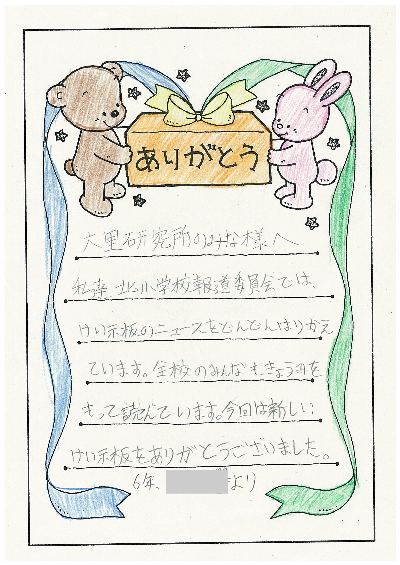 ありがとう
大里研究所のみな様へ
私達 北小学校報道委員会では、
けい示板のニュースをどんどんはりかえ
ています。全校のみんなも、きょうみを
もって読んでいます。今回は新しい
けい示板をありがとうございました。
6年、
より